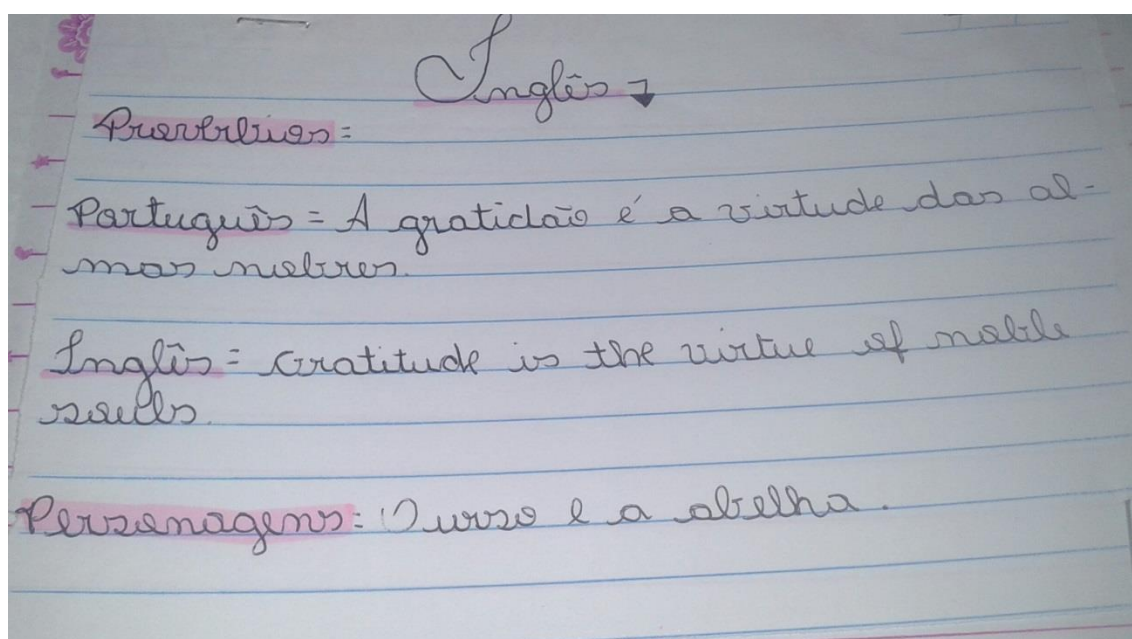 Inglês
Provérbios =
Português = A gratidão é a virtude das al-
mas nobres.
Inglês = Gratitude is the virtue of noble
souls.
Personagens: O urso e a abelha.